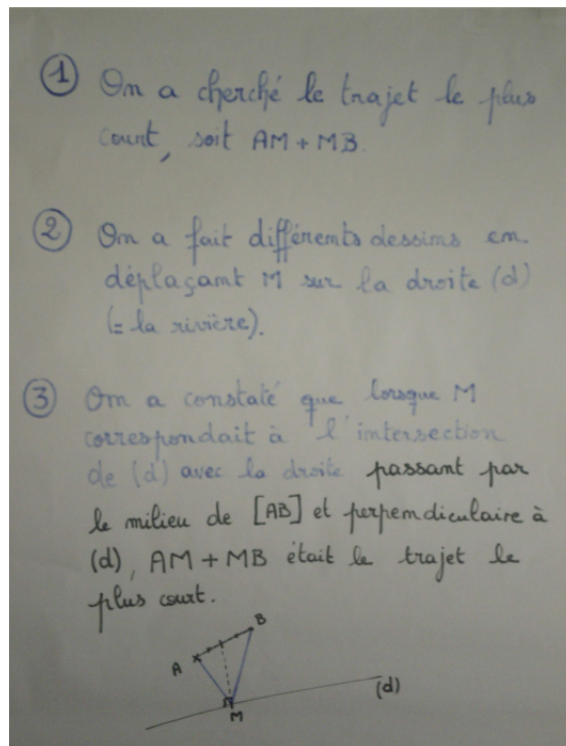 ① On a cherché le trajet le plus
court, soit AM + MB.
② On a fait différents dessins en
déplaçant M sur la droite (d)
(= la rivière).
③ On a constaté que lorsque M
correspondait à l'intersection
de (d) avec la droite passant par
le milieu de [AB] et perpendiculaire à
(d), AM + MB était le trajet le
plus court.
B
A
(d)
M